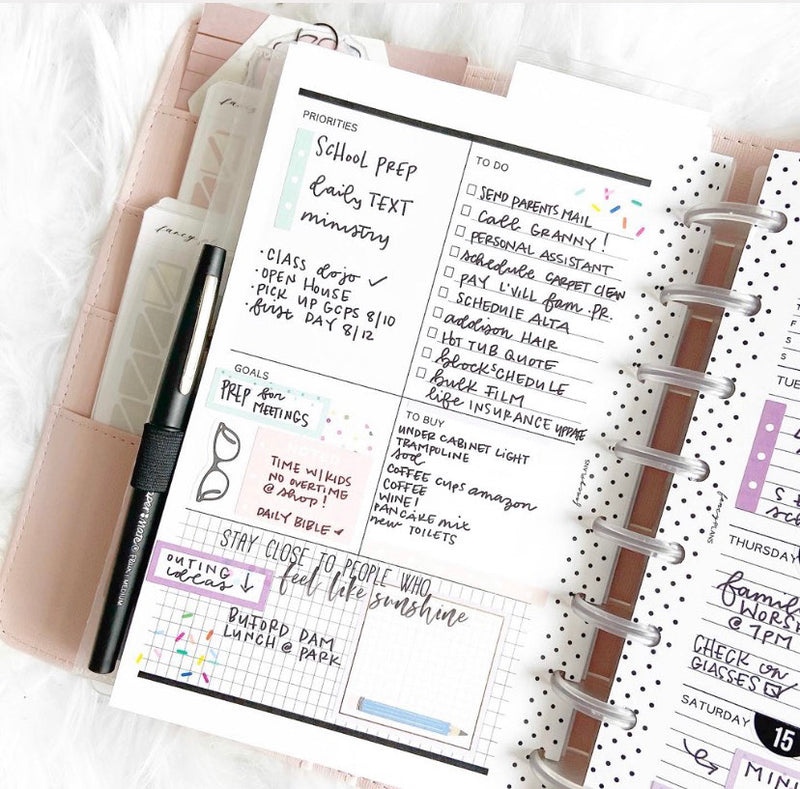 PRIORITIES
SCHOOL PREP
daily TEXT
ministry
• CLASS dojo ✓
• OPEN HOUSE
• PICK UP GCPS 8/10
• first DAY 8/12
TO DO
SEND PARENTS MAIL
Call GRANNY!
PERSONAL ASSISTANT
schedule CARPET CLEAN
PAY L'VILL fam. PR.
SCHEDULE ALTA
addison HAIR
HOT TUB QUOTE
blocks SCHEDULE
bulk FILM
life INSURANCE UPDATE
GOALS
PREP for
MEETINGS
TIME W/ KIDS
NO OVERTIME
@ shop!
DAILY BIBLE
TO BUY
UNDER CABINET LIGHT
TRAMPOLINE
sod
COFFEE CUPS amazon
COFFEE
WINE!
PANCAKE mix
new TOILETS
STAY CLOSE TO PEOPLE WHO
feel like sunshine
OUTING
ideas ↓
BUFORD DAM
LUNCH @ PARK
fancyPLANS
fancyPLANS
PAPER MATE FLAIR MEDIUM
THURSDAY
family
WORS
@ 7PM
CHECK on
GLASSES ☑
SATURDAY
15
MIN